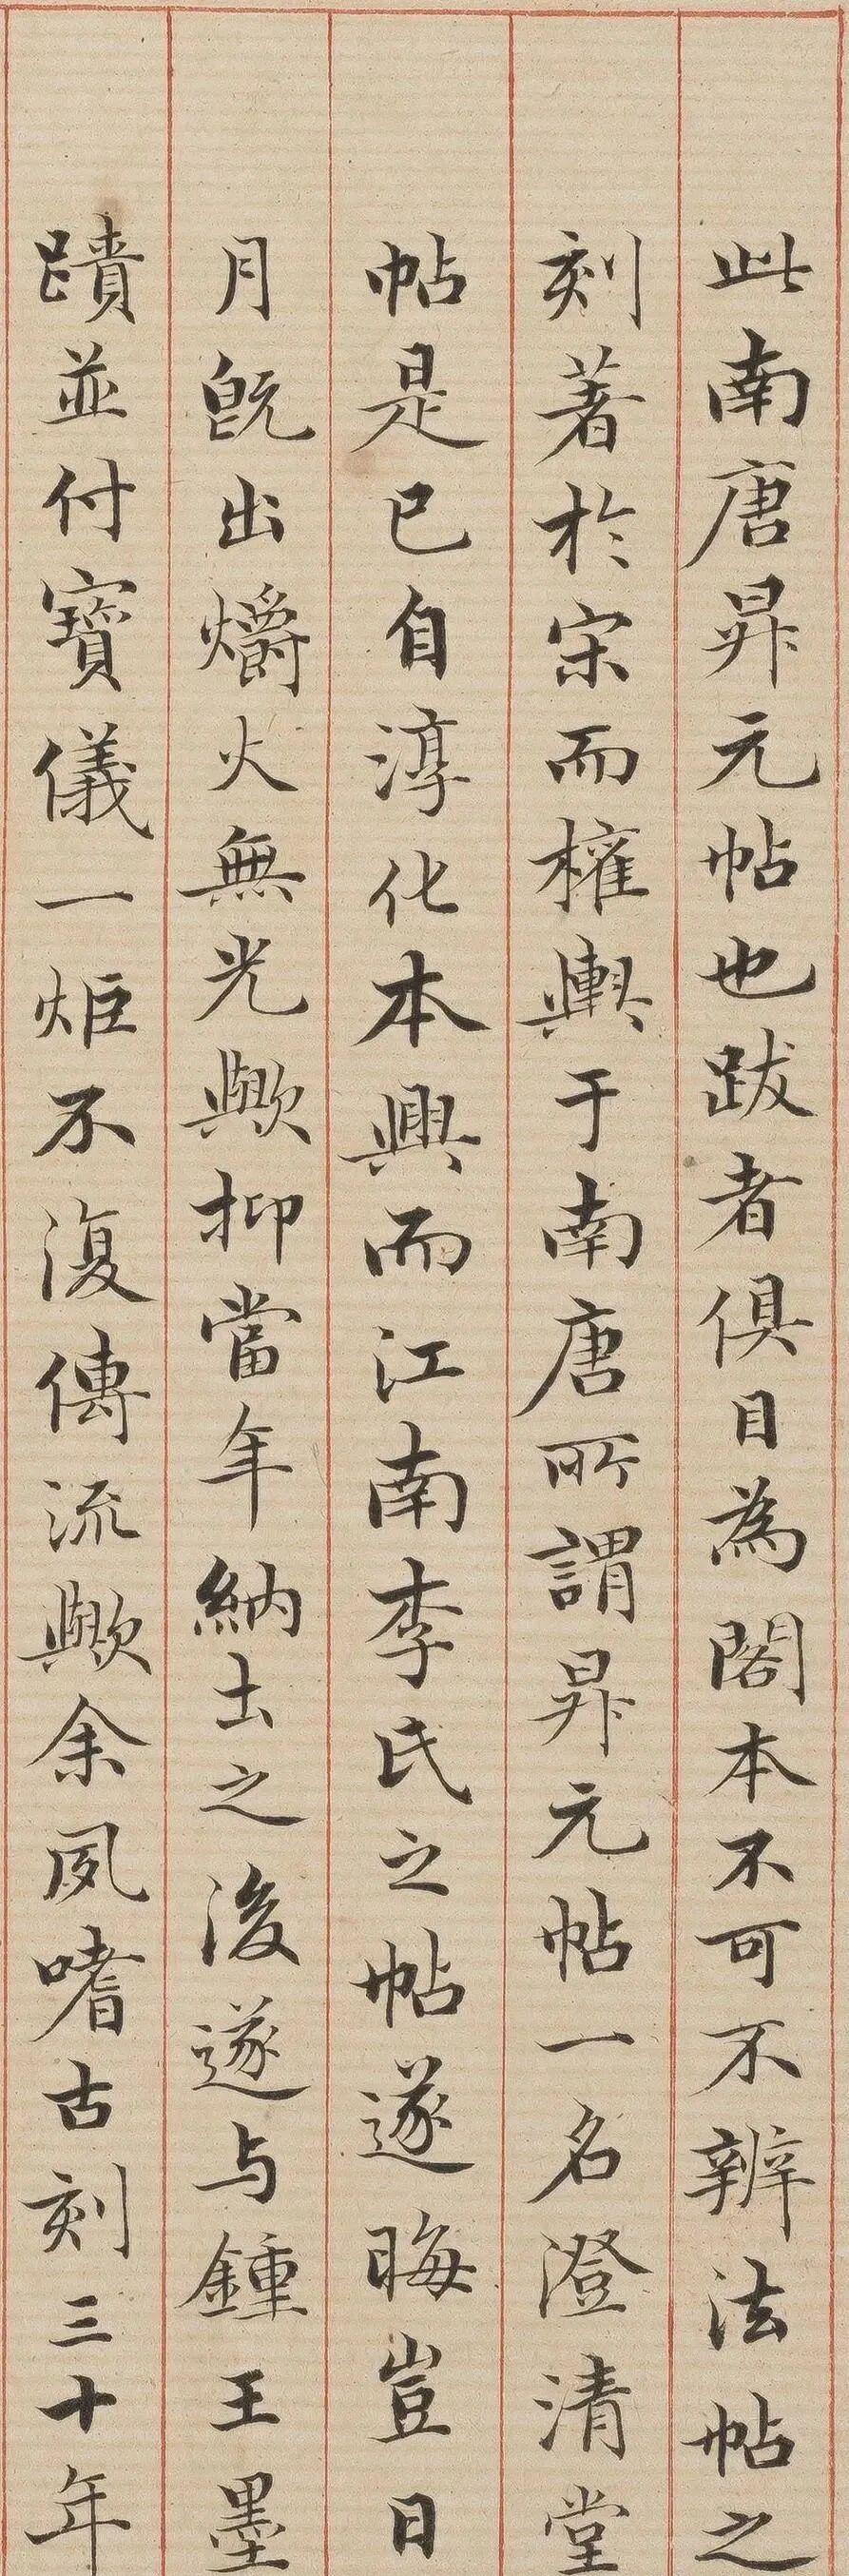 此南唐昇元帖也跋者俱目為閣本不可不辨法帖之
刻著於宋而權輿于南唐所謂昇元帖一名澄清堂
帖是已自淳化本興而江南李氏之帖遂晦豈日
月既出爝火無光歟抑當年納土之後遂与鍾王墨
蹟並付寶儀一炬不復傳流歟余夙嗜古刻三十年